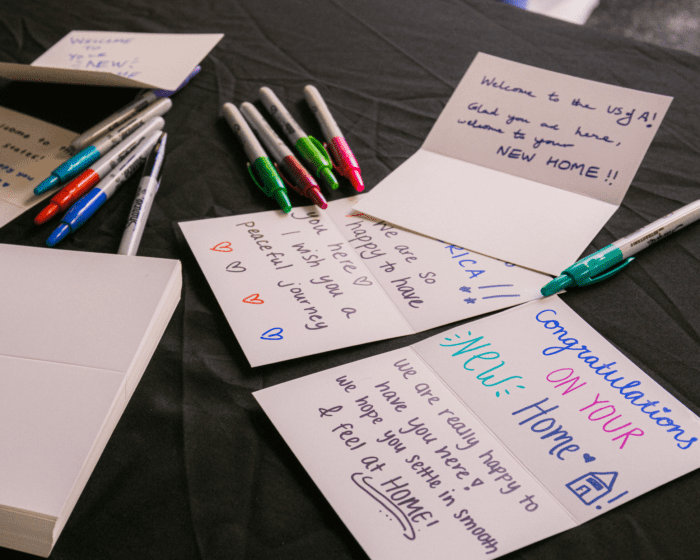 WELCOME
TO
YOUR
NEW
Welcome to the US of A!
Glad you are here,
welcome to your
NEW HOME!!
We are so
happy to have
you here ♡
I wish you a
peaceful journey
RICA!!
Congratulations
ON YOUR
NEW
Home
!
we are really happy to
have you here!
we hope you settle in smooth
& feel at HOME!